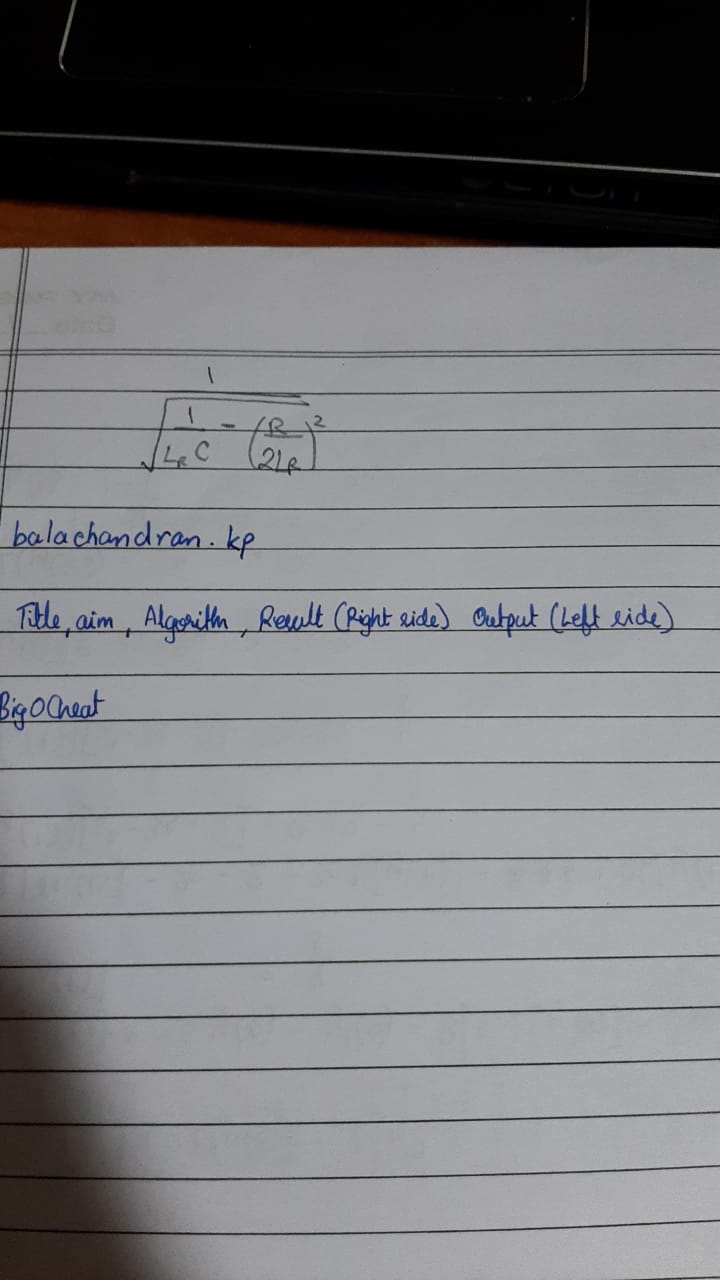 1
√ 1/L_R C - (R/2L_R)²
balachandran.kp
Title, aim, Algorithm, Result (Right side) Output (Left side)
BigOCheat